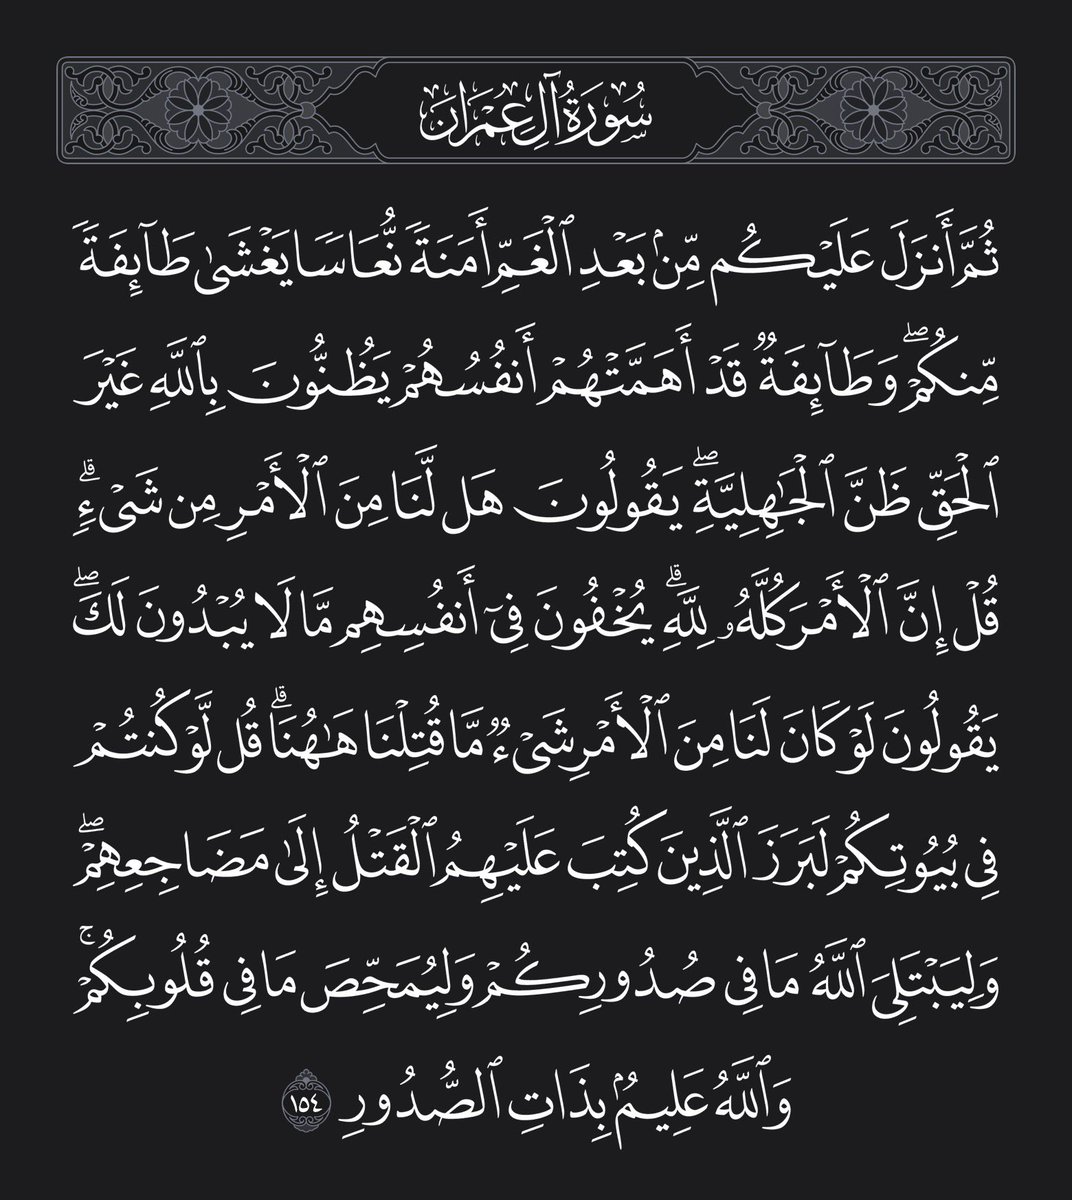 سُورَةُ آلِ عِمْرَانَ
ثُمَّ أَنزَلَ عَلَيْكُم مِّنۢ بَعْدِ ٱلْغَمِّ أَمَنَةً نُّعَاسًا يَغْشَىٰ طَآئِفَةً
مِّنكُمْ ۖ وَطَآئِفَةٌ قَدْ أَهَمَّتْهُمْ أَنفُسُهُمْ يَظُنُّونَ بِٱللَّهِ غَيْرَ
ٱلْحَقِّ ظَنَّ ٱلْجَٰهِلِيَّةِ ۖ يَقُولُونَ هَل لَّنَا مِنَ ٱلْأَمْرِ مِن شَىْءٍ ۗ
قُلْ إِنَّ ٱلْأَمْرَ كُلَّهُۥ لِلَّهِ ۗ يُخْفُونَ فِىٓ أَنفُسِهِم مَّا لَا يُبْدُونَ لَكَ ۖ
يَقُولُونَ لَوْ كَانَ لَنَا مِنَ ٱلْأَمْرِ شَىْءٌ مَّا قُتِلْنَا هَٰهُنَا ۗ قُل لَّوْ كُنتُمْ
فِى بُيُوتِكُمْ لَبَرَزَ ٱلَّذِينَ كُتِبَ عَلَيْهِمُ ٱلْقَتْلُ إِلَىٰ مَضَاجِعِهِمْ ۖ
وَلِيَبْتَلِىَ ٱللَّهُ مَا فِى صُدُورِكُمْ وَلِيُمَحِّصَ مَا فِى قُلُوبِكُمْ ۚ
وَٱللَّهُ عَلِيمٌۢ بِذَاتِ ٱلصُّدُورِ ١٥٤